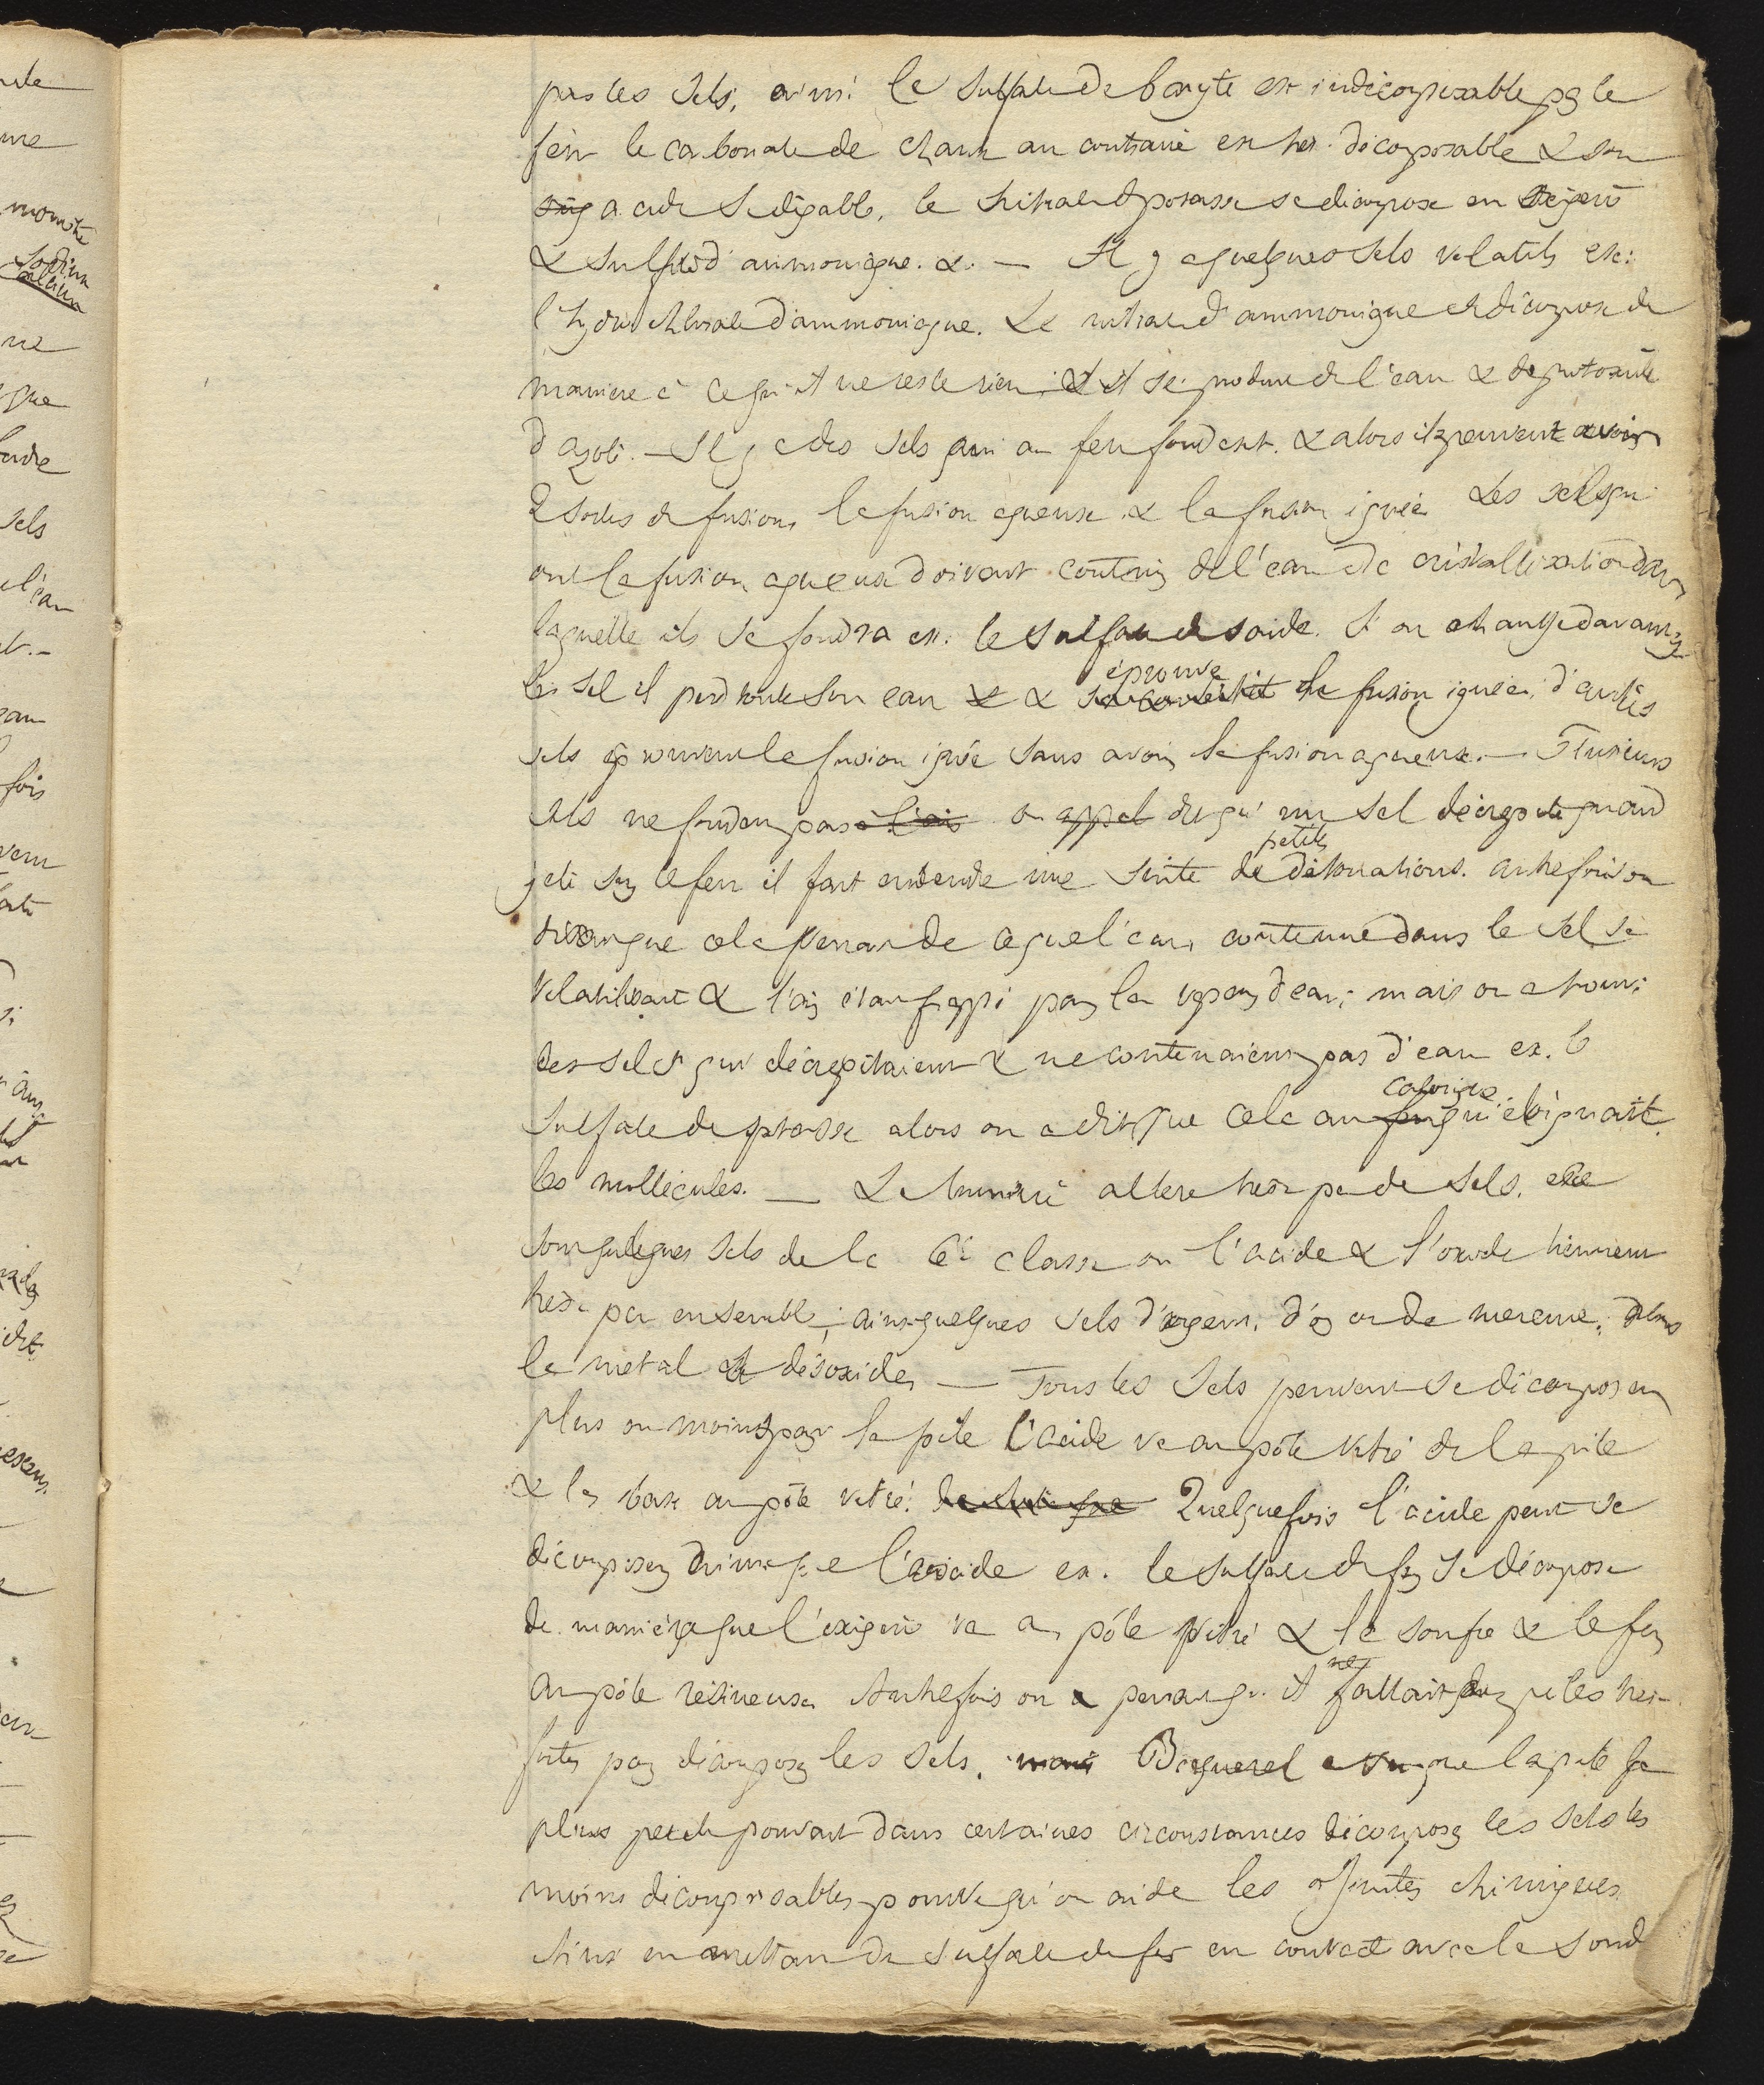 pas les sels, ainsi le sulfate de baryte est indécomposable par le
feu le carbonate de chaux au contraire est très décomposable & son
acide se dégable, le nitrate de potasse se décompose en
& sulfite d'ammoniaque. &. — Il y a quelques sels volatils ex:
l'hydrochlorate d'ammoniaque. Le nitrate d'ammoniaque se décompose de
maniere à ce qu'il ne reste rien; & il se produit de l'eau & de protoxide
d'azote. — Il y a des sels qui au feu fondent. & alors ils peuvent avoir
2 sortes de fusion, la fusion aqueuse & la fusion ignée Les sels qui
ont la fusion aqueuse doivent contenir de l'eau de cristallisation dans
laquelle ils se fondra ex. le sulfate de soude. Si on chauffe davantage
le sel il perd toute son eau & éprouve la fusion ignée, d'autres
sels éprouvent la fusion ignée sans avoir la fusion aqueuse. — Plusieurs
sels ne fondent pas à l'air on appel dit qu'un sel décrepite quand
jeté sur le feu il fait entendre une suite de petites détonations. autrefois on
disait que cela venait de ce que l'eau contenue dans le sel se
volatilisant & l'air étant frappé par la vapeur d'eau; mais on a trouvé
des sels qui décrepitaient & ne contenaient pas d'eau ex. le
sulfate de potasse alors on a dit que cela au calorique qui éloignait
les mollécules. — La lumière altere très peu de sels. elle
sont quelques sels de la 6e classe ou l'acide & l'oxide tiennent
très peu ensemble; ainsi quelques sels d'argent, d'or ou de mercure; alors
le metal se désoxide, — Tous les sels peuvent se décomposer
plus ou moins par la pile l'acide va au pôle vitré de la pile
& la base au pôle vitré. Quelquefois l'acide peut se
décomposer ainsi que l'oxide ex. le sulfate de fer se décompose
de manière que l'oxigène va au pôle vitré & le soufre & le fer
au pôle résineux. Autrefois on a pensait qu'il ne fallait que des piles très
fortes pour décomposer les sels. mais Becquerel a vu que la pile la
plus petite pouvait dans certaines circonstances décomposer les sels les
moins décomposables pourvu qu'on aide les affinités chimiques
Ainsi en mettant du sulfate de fer en contact avec le soud